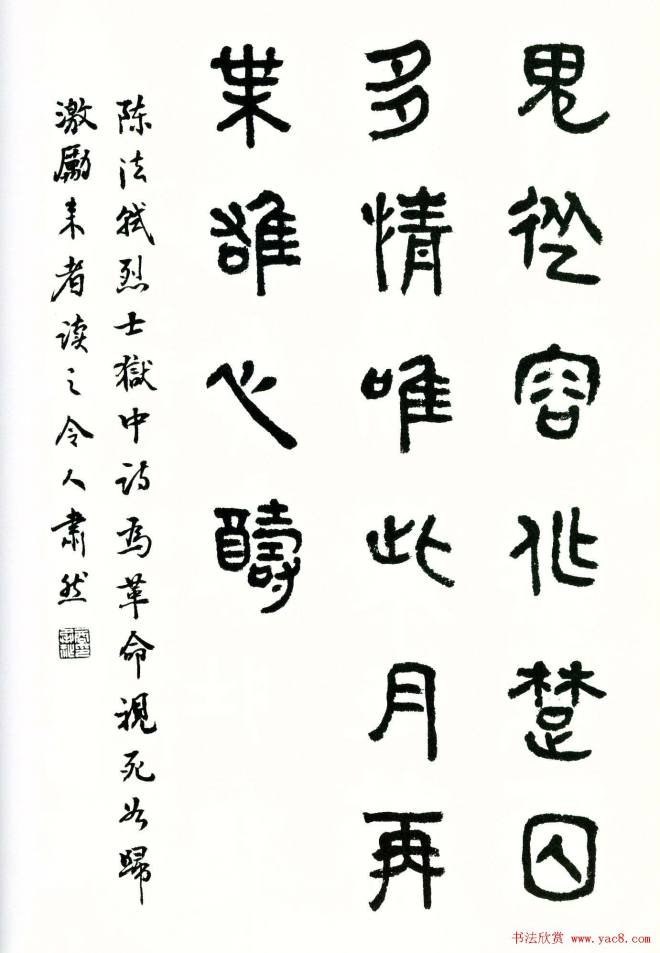 鬼從容作楚囚
多情唯此月再
業雄心醻
陈法轼烈士獄中诗為革命視死如歸
激勵来者读之令人肅然
书法欣赏 www.yac8.com